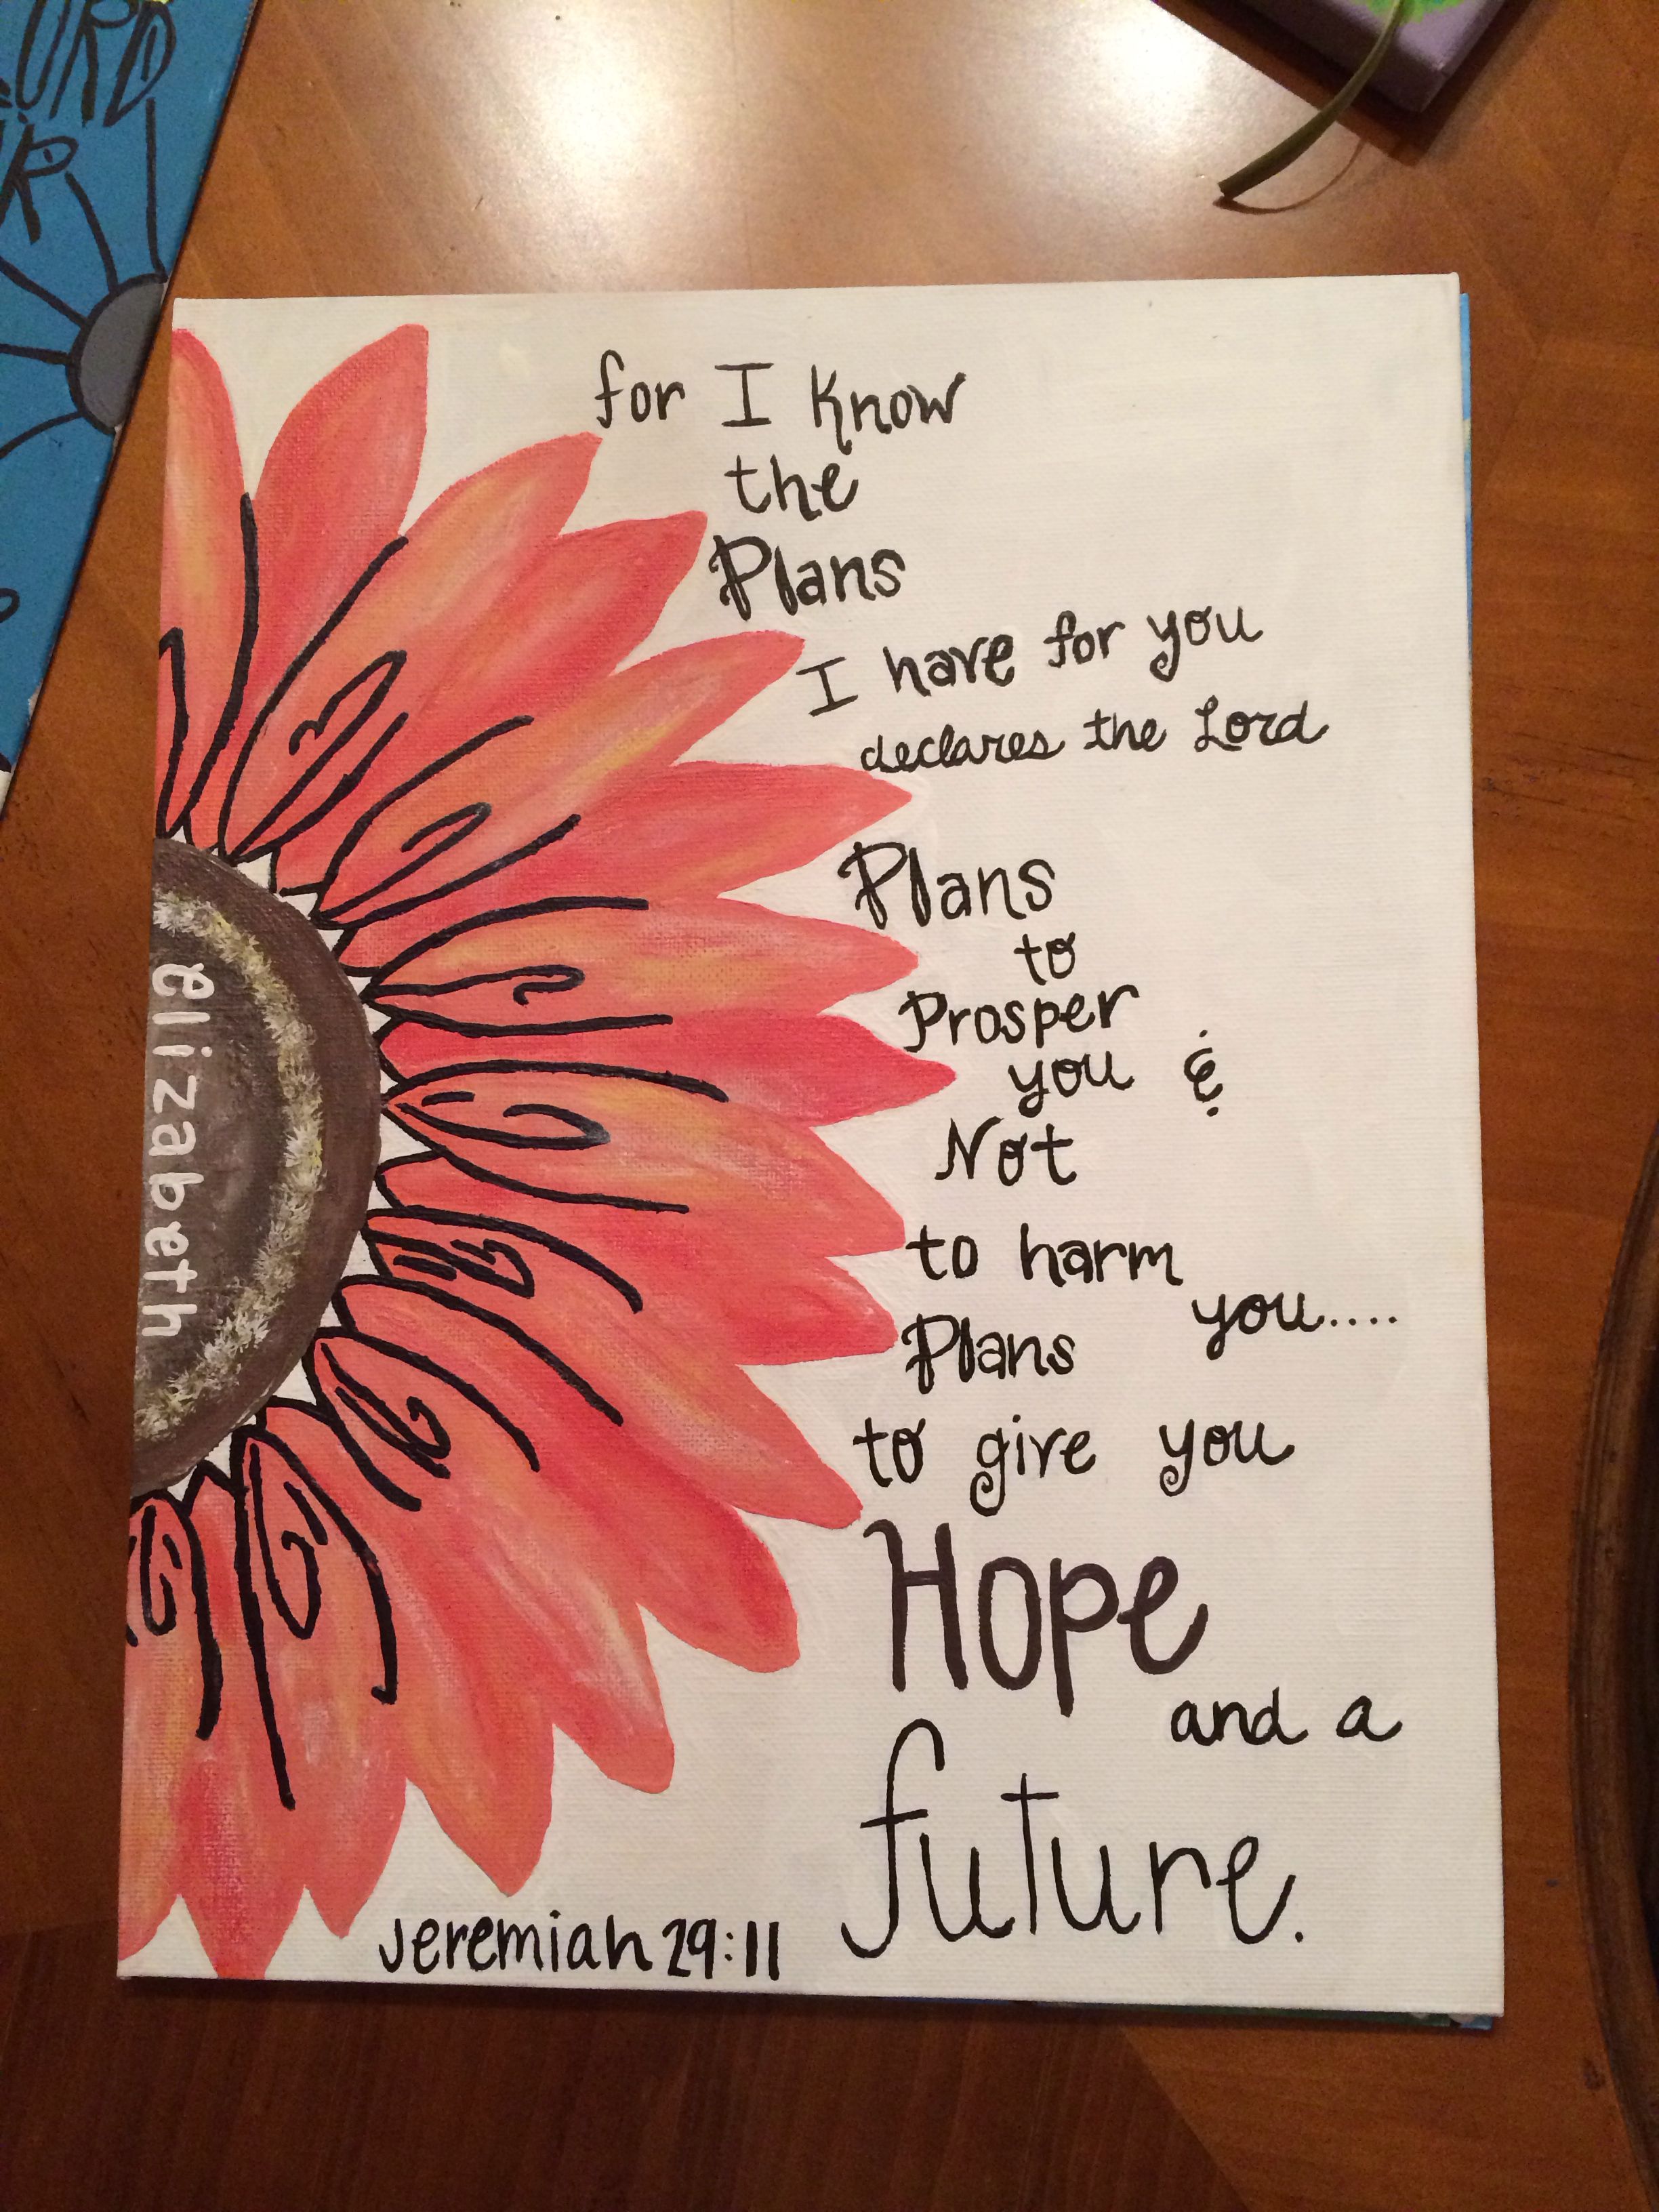 URD
for I Know
the
Plans
I have for you
declares the Lord
Plans
to
Prosper
you &
Not
to harm
you....
Plans
to give you
Hope
and a
future.
Jeremiah 29:11
elizabeth